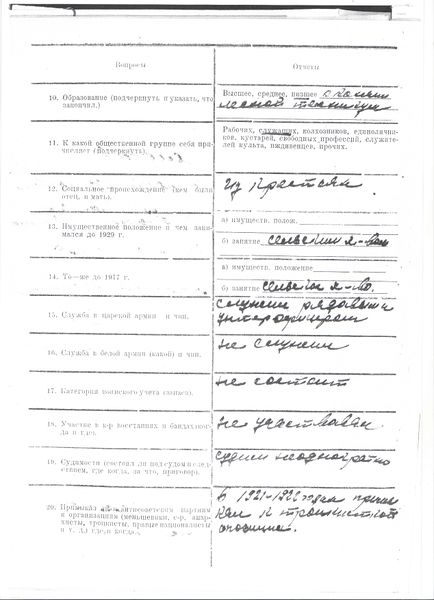 Вопросы
Ответы
10. Образование (подчеркнуть и указать, что закончил.)
Высшее, среднее, низшее окончил
лесной техникум
11. К какой общественной группе себя причисляет (подчеркнуть).
Рабочих, служащих, колхозников, единоличников, кустарей, свободных профессий, служителей культа, иждивенцев, прочих.
12. Социальное происхождение (кем были отец, и мать).
из крестьян
13. Имущественное положение и чем занимался до 1929 г.
а) имуществ. полож.
б) занятие сельским х-вом
14. То-же до 1917 г.
а) имуществ. положение
б) занятие сельским х-во.
15. Служба в царской армии и чин.
служил рядовым и
унтерофицером
16. Служба в белой армии (какой) и чин.
не служил
17. Категория воинского учета (запаса).
не состоит
18. Участие в к-р восстаниях и бандах (когда и где).
не участвовал
19. Судимости (состоял ли под судом и следствием, где когда, за что, приговор).
судим неоднократно
20. Примыкал ли к антисоветским партиям и организациям (меньшевики, с-р, анархисты, троцкисты, правые националисты и т. д.) где и когда.
в 1921-1922 годах примы
кал к троцкистской
опозиции.